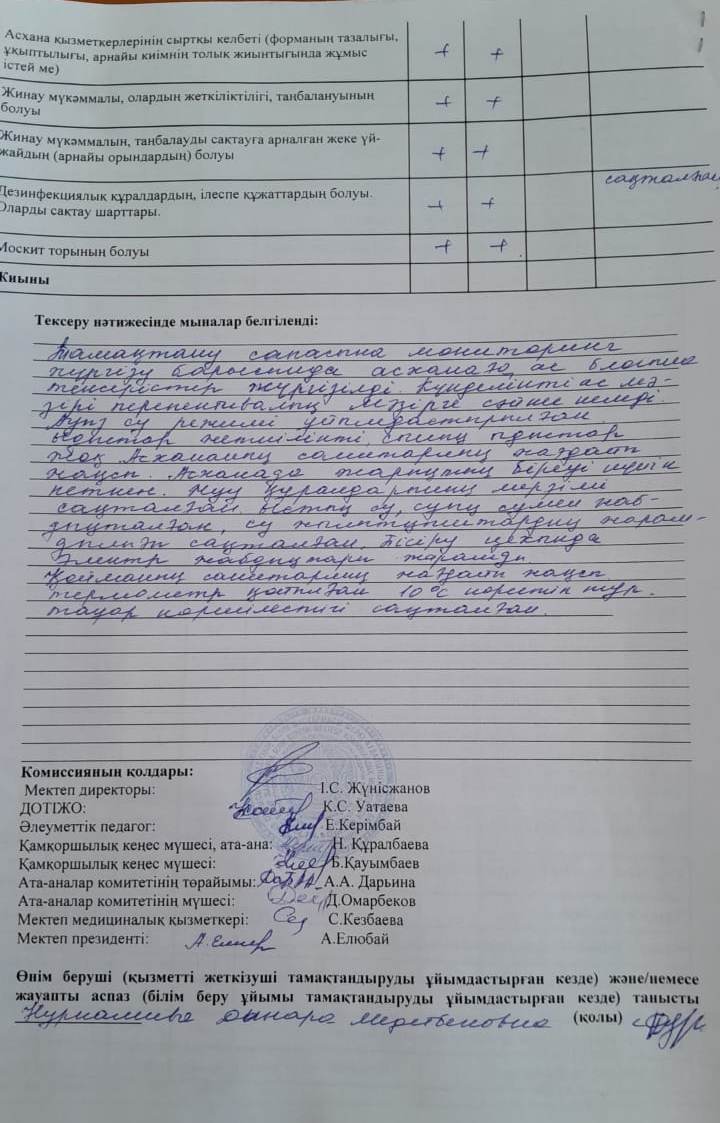 Асхана қызметкерлерінің сыртқы келбеті (форманың тазалығы,
ұқыптылығы, арнайы киімнің толық жиынтығында жұмыс
істей ме) + +
Жинау мүкәммалы, олардың жеткіліктілігі, таңбалануының
болуы + +
Жинау мүкәммалын, таңбалауды сақтауға арналған жеке үй-
жайдың (арнайы орындардың) болуы + +
Дезинфекциялық құралдардың, ілеспе құжаттардың болуы.
Оларды сақтау шарттары. + + сақталған
Москит торының болуы + +
Жиыны
Тексеру нәтижесінде мыналар белгіленді:
Тамақтану сапасына мониторинг
жүргізу барысында асханаға, ас блогына
тексерістер жүргізілді. Күнделікті ас мә-
зірі перспективалық мәзірге сәйкес келеді.
Ауыз су режимі ұйымдастырылған
ыдыстар жеткілікті, сынық ыдыстар
жоқ. Асхананың санитарлық жағдайы
жақсы. Асханада жарықтың біреуі күйіп
кеткен. Жуу құралдарының мерзімі
сақталған. Ыстық су, суық сумен жаб-
дықталған, су жылытқыштардың жарам-
дылығы сақталған. Пісіру цехында
электр жабдықтары жарамды.
Қойманың санитарлық жағдайы жақсы
термометр қойылған 10°с көрсетіп тұр.
тауар көршілестігі сақталған.
Комиссияның қолдары:
Мектеп директоры: І.С. Жүнісжанов
ДОТІЖО: К.С. Уатаева
Әлеуметтік педагог: Е.Керімбай
Қамқоршылық кеңес мүшесі, ата-ана: Н. Құралбаева
Қамқоршылық кеңес мүшесі: Б.Қауымбаев
Ата-аналар комитетінің төрайымы: А.А. Дарьина
Ата-аналар комитетінің мүшесі: Д.Омарбеков
Мектеп медициналық қызметкері: С.Кезбаева
Мектеп президенті: А.Елюбай
Өнім беруші (қызметті жеткізуші тамақтандыруды ұйымдастырған кезде) және/немесе
жауапты аспаз (білім беру ұйымы тамақтандыруды ұйымдастырған кезде) танысты
Динара (қолы)